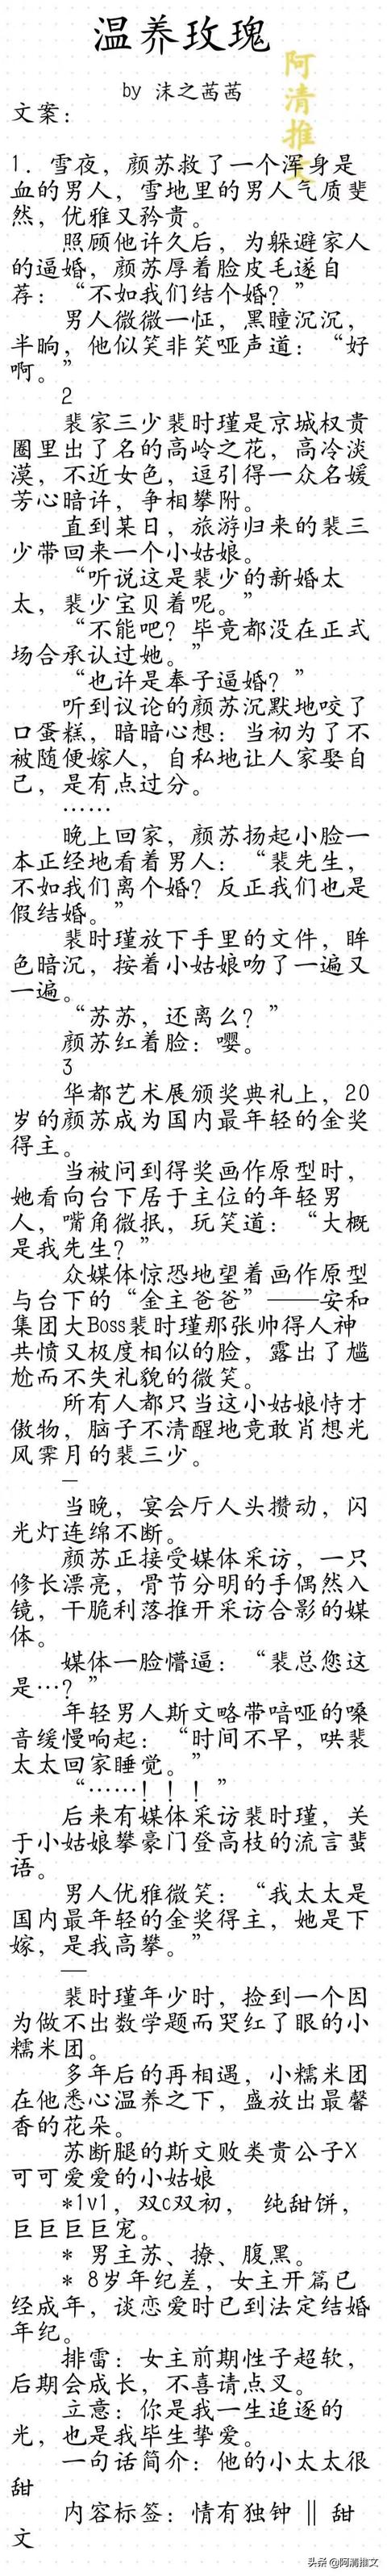 温养玫瑰
阿清推文
by 沫之茜茜
文案：
1. 雪夜，颜苏救了一个浑身是
血的男人，雪地里的男人气质斐
然，优雅又矜贵。
照顾他许久后，为躲避家人
的逼婚，颜苏厚着脸皮毛遂自
荐：“不如我们结个婚？”
男人微微一怔，黑瞳沉沉，
半晌，他似笑非笑哑声道：“好
啊。”
2
裴家三少裴时瑾是京城权贵
圈里出了名的高岭之花，高冷淡
漠，不近女色，逗引得一众名媛
芳心暗许，争相攀附。
直到某日，旅游归来的裴三
少带回来一个小姑娘。
“听说这是裴少的新婚太
太，裴少宝贝着呢。”
“不能吧？毕竟都没在正式
场合承认过她。”
“也许是奉子逼婚？”
听到议论的颜苏沉默地咬了
口蛋糕，暗暗心想：当初为了不
被随便嫁人，自私地让人家娶自
己，是有点过分。
……
晚上回家，颜苏扬起小脸一
本正经地看着男人：“裴先生，
不如我们离个婚？反正我们也是
假结婚。”
裴时瑾放下手里的文件，眸
色暗沉，按着小姑娘吻了一遍又
一遍。
“苏苏，还离么？”
颜苏红着脸：嘤。
3
华都艺术展颁奖典礼上，20
岁的颜苏成为国内最年轻的金奖
得主。
当被问到得奖画作原型时，
她看向台下居于主位的年轻男
人，嘴角微抿，玩笑道：“大概
是我先生？”
众媒体惊恐地望着画作原型
与台下的“金主爸爸”——安和
集团大Boss裴时瑾那张帅得人神
共愤又极度相似的脸，露出了尴
尬而不失礼貌的微笑。
所有人都只当这小姑娘恃才
傲物，脑子不清醒地竟敢肖想光
风霁月的裴三少。
—
当晚，宴会厅人头攒动，闪
光灯连绵不断。
颜苏正接受媒体采访，一只
修长漂亮，骨节分明的手偶然入
镜，干脆利落推开采访合影的媒
体。
媒体一脸懵逼：“裴总您这
是…？”
年轻男人斯文略带喑哑的嗓
音缓慢响起：“时间不早，哄裴
太太回家睡觉。”
“……！！！”
后来有媒体采访裴时瑾，关
于小姑娘攀豪门登高枝的流言蜚
语。
男人优雅微笑：“我太太是
国内最年轻的金奖得主，她是下
嫁，是我高攀。”
——
裴时瑾年少时，捡到一个因
为做不出数学题而哭红了眼的小
糯米团。
多年后的再相遇，小糯米团
在他悉心温养之下，盛放出最馨
香的花朵。
苏断腿的斯文败类贵公子X
可可爱爱的小姑娘
*1v1，双c双初， 纯甜饼，
巨巨巨巨宠。
* 男主苏、撩、腹黑。
* 8岁年纪差，女主开篇已
经成年，谈恋爱时已到法定结婚
年纪。
排雷：女主前期性子超软，
后期会成长，不喜请点叉。
立意：你是我一生追逐的
光，也是我毕生挚爱。
一句话简介：他的小太太很
甜
内容标签：情有独钟 ‖ 甜
文
头条 @阿清推文